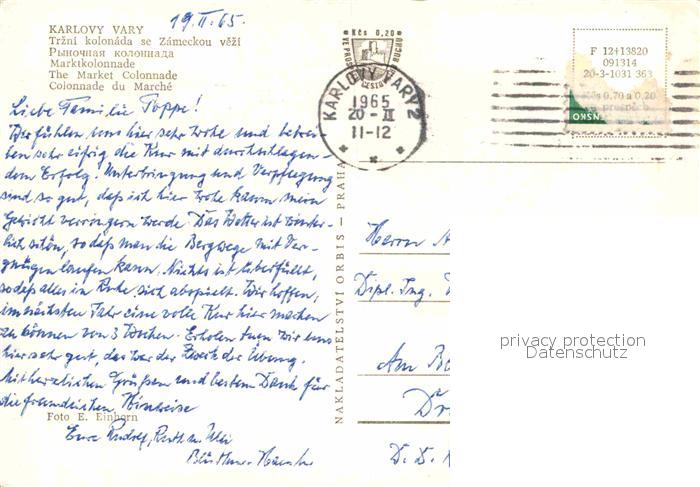 19.II.65.
KARLOVY VARY
Tržní kolonáda se Zámeckou věží
Рыночная колоннада
Marktkolonnade
The Market Colonnade
Colonnade du Marché
Liebe Familie Poppe!
Wir fühlen uns hier sehr wohl und betrei-
ben sehr eifrig die Kur mit durchschlagen-
dem Erfolg. Unterbringung und Verpflegung
sind so gut, daß ich hier wohl kaum mein
Gewicht verringern werde. Das Wetter ist winter-
lich schön, so daß man die Bergwege mit Ver-
gnügen laufen kann. Nichts ist überfüllt,
so daß alles in Ruhe sich abspielt. Wir hoffen,
im nächsten Jahr eine volle Kur hier machen
zu können von 3 Wochen. Erholen tuen wir uns
hier sehr gut, das war der Zweck der Übung.
Mit herzlichen Grüßen und bestem Dank für
die freundlichen Hinweise
Foto E. Einhorn
Eure Rudolf, Ruth u.
NAKLADATELSTVÍ ORBIS — PRAHA
Kčs 0,20
KARLOVY VARY 2
1965
20 - II
11-12
F 12+13820
091314
20-3-1031 363
Kčs 0.70 a 0.20
NSKO
Herrn A
Dipl. Ing.
Am Bo
Dr
D. D.
privacy protection
Datenschutz